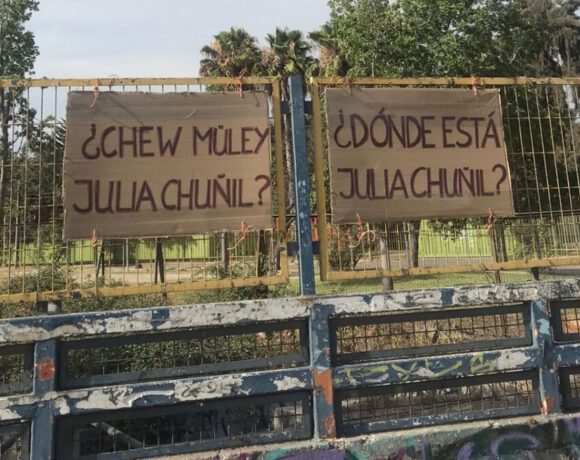 ¿CHEW MÜLEY
JULIA CHUÑIL?
¿DÓNDE ESTÁ
JULIA CHUÑIL?